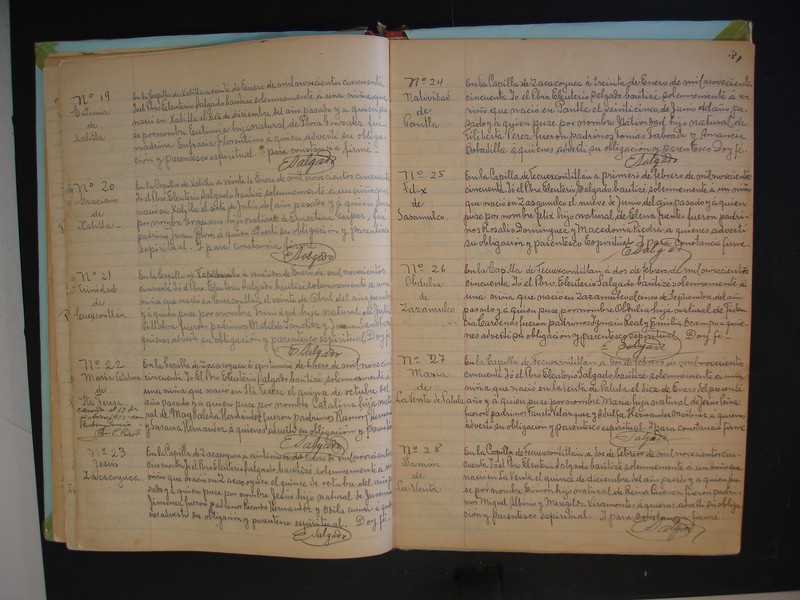 Nº 19
Eutimia
de
Xalitla
En la Capilla de Xalitla a veinte de Enero de mil novecientos cincuenta
Yo el Pbro. Eleuterio Salgado bauticé solemnemente a una niña que
nació en Xalitla el de diciembre del año pasado y a quien pu-
se por nombre Eutimia hija natural de Flora González fue
madrina Eufrasia Florentino a quien advertí su obliga-
ción y parentesco espiritual para constancia firmé.
E Salgado
Nº 20
Graciano
de
Xalitla
En la Capilla de Xalitla a veinte de Enero de mil novecientos cincuenta
Yo el Pbro Eleuterio Salgado bauticé solemnemente a un niño que
nació en Xalitla el de Julio del año pasado y a quien puse
por nombre Graciano hijo natural de Ernestina fue
padrino Juan Flores a quien advertí su obligación y parentesco
espiritual. Y para constancia firmé
E Salgado
Nº 21
Trinidad
de
En la Capilla de a veintidos de Enero de mil novecientos
cincuenta Yo el Pbro. Eleuterio Salgado bauticé solemnemente a una
niña que nació en el veinte de Abril del año pasado
y a quien puse por nombre Trinidad hija natural de
Villalva fueron padrinos Matilde Sánchez y Juana Sánchez
quienes advertí su obligación y parentesco espiritual Doy fe.
E Salgado
Nº 22
María Catalina
de
Sta Teresa
En la Capilla de Zacacoyuca a veintinueve de Enero de mil novecientos
cincuenta Yo el Pbro. Eleuterio Salgado bauticé solemnemente a
una niña que nació en Sta Teresa el quince de octubre del
año pasado y a quien puse por nombre Catalina hija natu-
ral de Magdalena Hernández fueron padrinos Ramón
y Susana Hernández a quienes advertí su obligación y
E Salgado
Nº 23
Jesús
Zacacoyuca
En la Capilla de Zacacoyuca a de Enero de mil novecientos
cincuenta Yo el Pbro. Eleuterio Salgado bauticé solemnemente a un
niño que nació en Zacacoyuca el quince de octubre del año pa-
sado y a quien puse por nombre Jesús hijo natural de Juventina
Jiménez fueron padrinos Ricardo Hernández y Odila a quie-
nes advertí su obligación y parentesco espiritual. Doy fe.
E Salgado
31
Nº 24
Natividad
de
Pantla
En la Capilla de Zacacoyuca á treinta de Enero de mil novecientos
cincuenta Yo el Pbro. Eleuterio Salgado bauticé solemnemente á un
niño que nació en Pantla el veinticinco de Junio del año pa-
sado y a quien puse por nombre Natividad hijo natural de
Filiberta Pérez fueron padrinos Tomás Taboada y Amancia
Bobadilla á quienes advertí su obligación y parentesco Doy fe.
E Salgado
Nº 25
Félix
de
Sasamulco.
En la Capilla de Tecuexcontitlán a primero de febrero de mil novecientos
cincuenta. Yo el Pbro Eleuterio Salgado bauticé solemnemente a un niño
que nació en Zazamulco el nueve de Junio del año pasado y a quien
puse por nombre Félix hijo natural de Elena Fuentes fueron padri-
nos Rosalío Domínguez y Macedonia Piedra a quienes advertí
su obligación y parentesco Espiritual. Y para Constancia firmé
E Salgado
Nº 26
Obdulia
de
Zazamulco
En la Capilla de Tecuexcontitlán a dos de febrero de mil novecientos
cincuenta Yo el Pbro. Eleuterio Salgado bauticé solemnemente á
una niña que nació en Zazamulco el cinco de Septiembre del año
pasado y a quien puse por nombre Obdulia hija natural de
Cárdenas fueron padrinos Ignacio Real y Emilia Ocampo a quie-
nes advertí su obligación y parentesco espiritual Doy fe.
E Salgado
Nº 27
María
de
La Venta de Palula
En la Capilla de Tecuexcontitlán a dos de febrero de mil novecientos
cincuenta Yo el Pbro. Eleuterio Salgado bauticé solemnemente a una
niña que nació en la Venta de Palula el seis de Enero del presente
año y a quien puse por nombre María hija natural de Jesús
fueron padrinos Fausto Velázquez y Adulfa Hernández a quienes
advertí su obligación y parentesco espiritual. Y para constancia firmé
E Salgado
Nº 28
Simón
de
La Venta
En la Capilla de Tecuexcontitlán a dos de febrero de mil novecientos cin-
cuenta Yo el Pbro. Eleuterio Salgado bauticé solemnemente a un niño que
nació en La Venta el quince de diciembre del año pasado y a quien pu-
se por nombre Simón hijo natural de Reina Cuenca fueron padri-
nos Miguel Albino y Viramontes a quienes advertí su obliga-
ción y parentesco espiritual. Y para constancia firmé
E Salgado